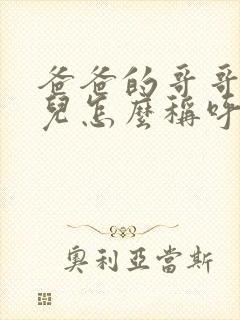 爸爸的哥哥
兒怎麼稱呼
奧利亞當斯